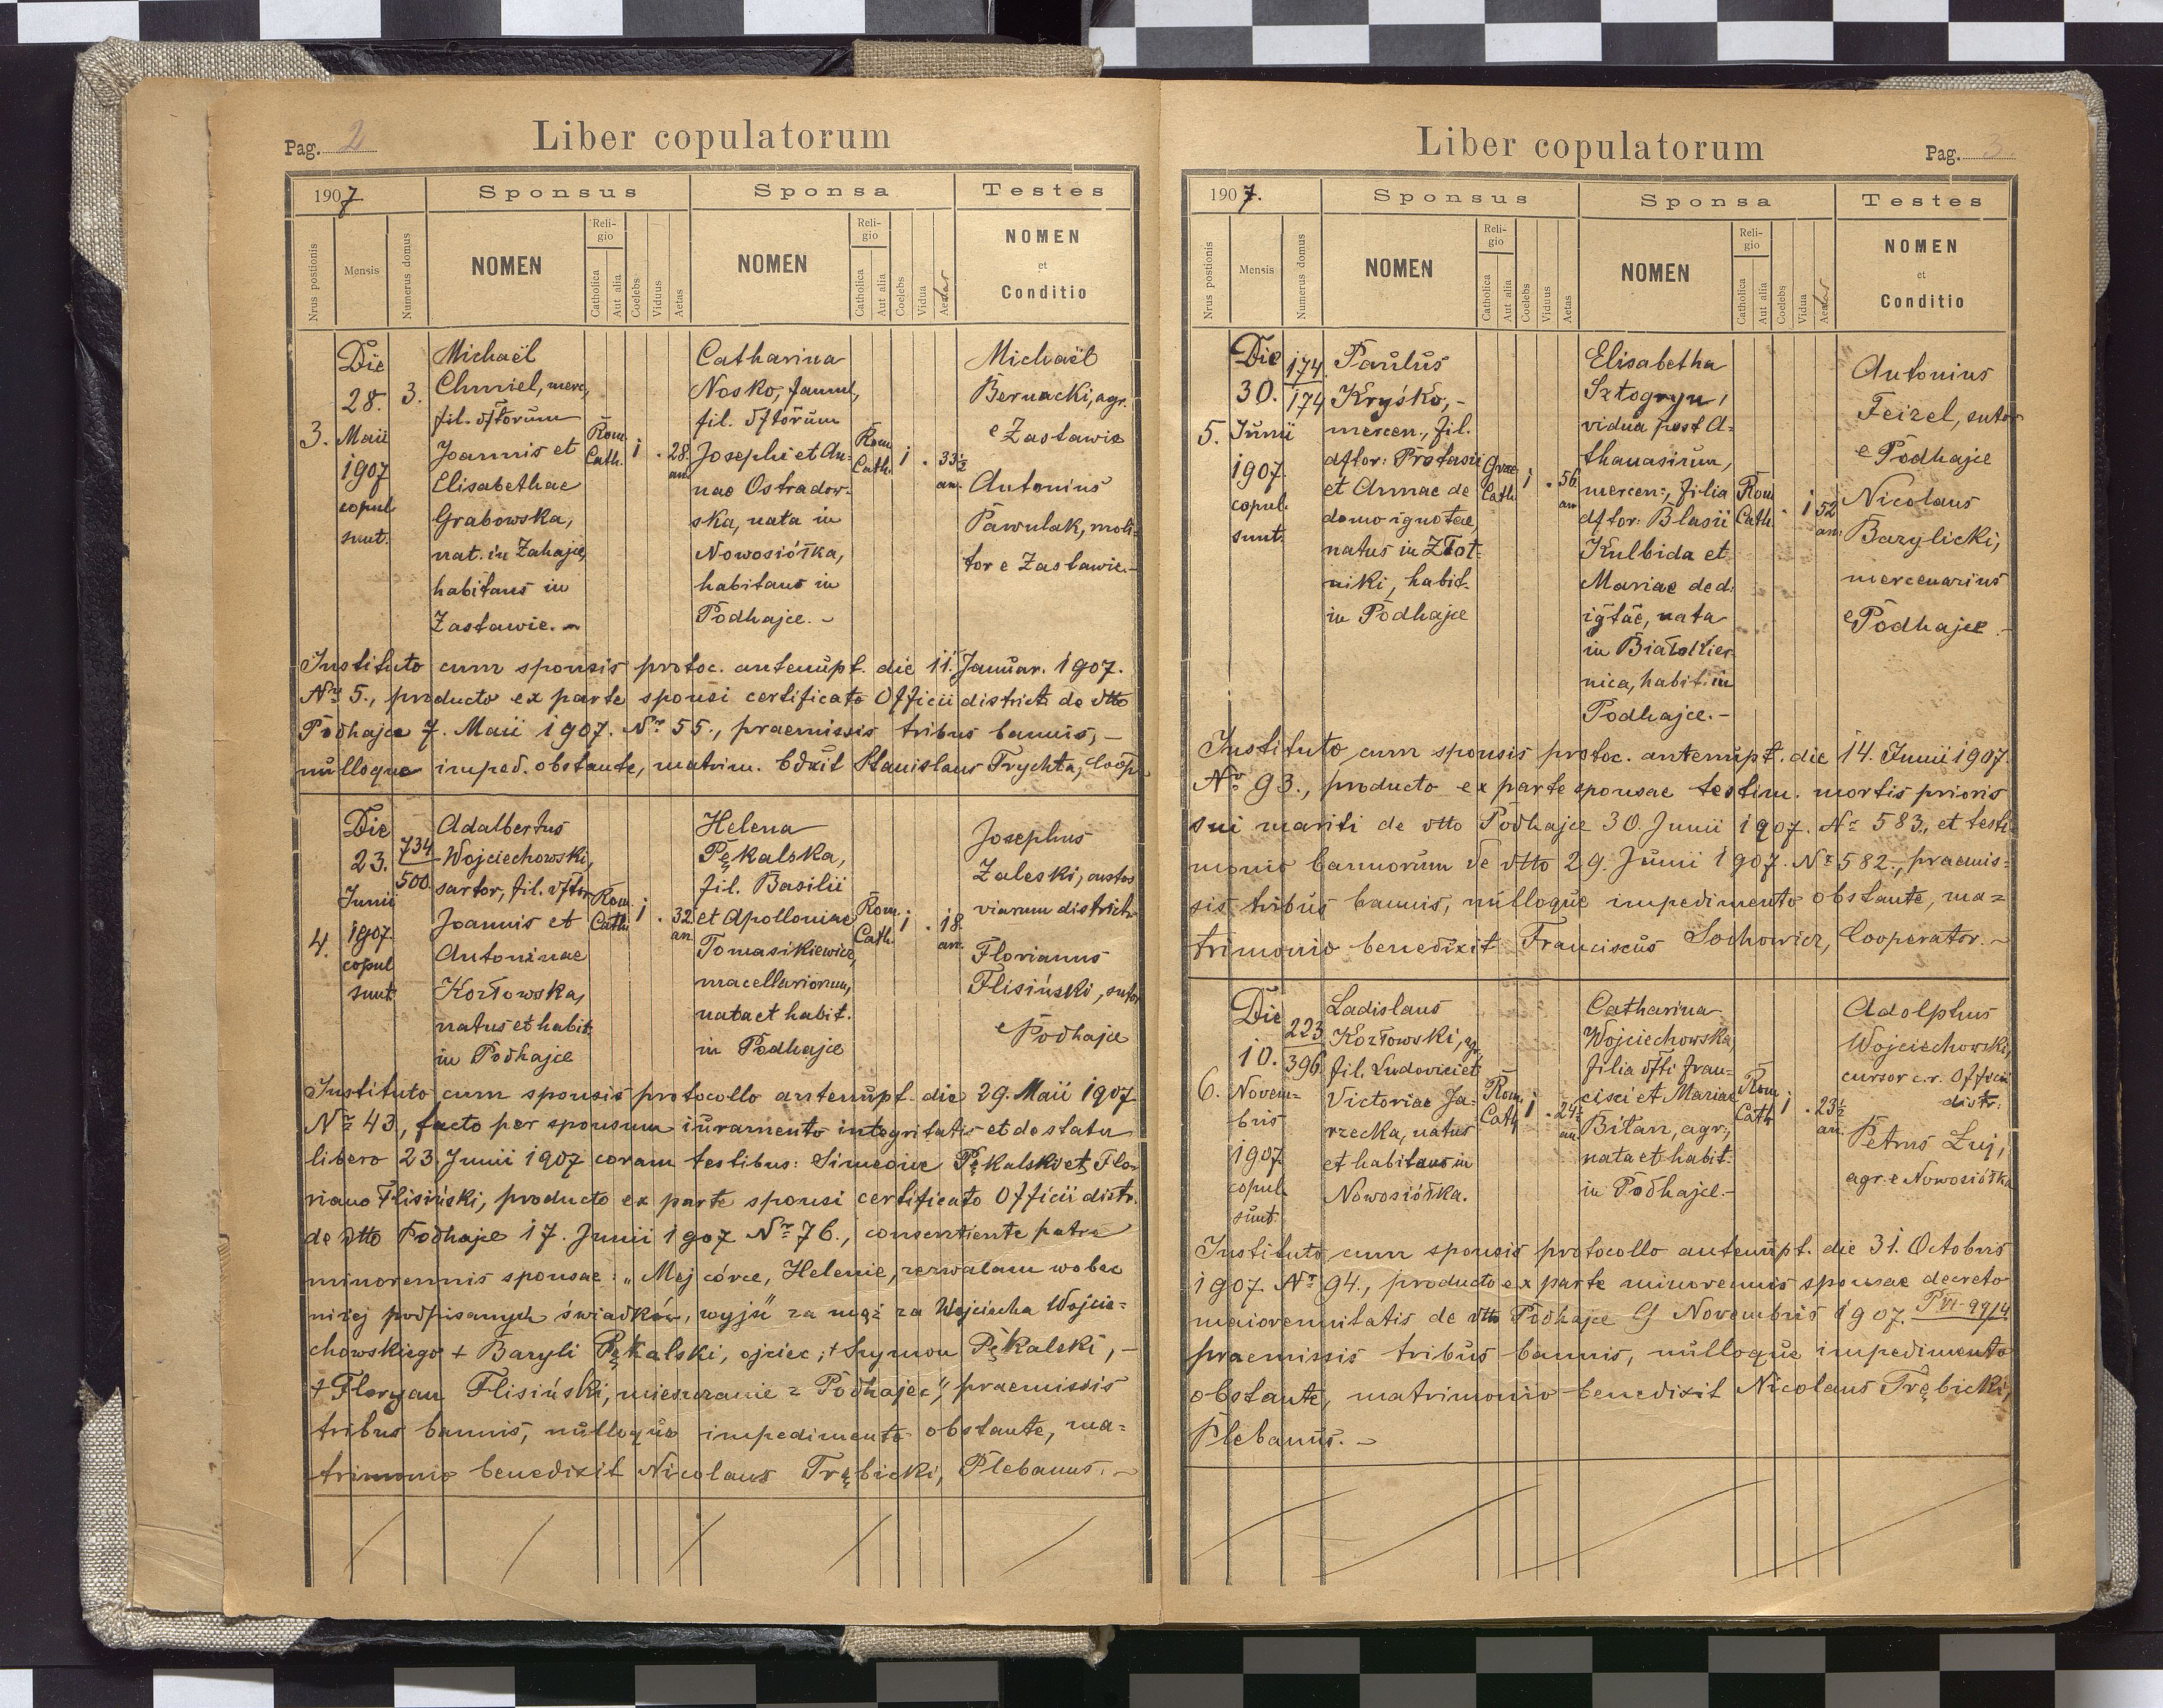 Pag. 2
Liber copulatorum
1907
Sponsus
Sponsa
Testes
Nrus postionis
Mensis
Numerus domus
NOMEN
Religio
Catholica
Aut alia
Coelebs
Viduus
Aetas
NOMEN
Religio
Catholica
Aut alia
Coelebs
Vidua
Aestas
NOMEN
et
Conditio
3.
Die
28.
Maii
1907
copul.
sunt.
3.
Michaël
Chmiel, merc,
fil. dftorum
Joannis et
Elisabethae
Grabowska,
nat. in Zahajce,
habitans in
Zastawie. -
Rom.
Cath.
i
.
28.
an.
Catharina
Nosko, famul,
fil. dftorum
Josephi et An-
nae Ostradow-
ska, nata in
Nowosiółka,
habitans in
Podhajce. -
Rom.
Cath.
i
.
33½
an.
Michaël
Bernacki, agr.
e Zastawie
Antonius
Pawulak, moli-
tor e Zastawie.-
Instituto cum sponsis protoc. antenupt. die 11. Januar. 1907.
Nr 5., producto ex parte sponsi certificato Officii district. de dtto
Podhajce 7. Maii 1907. Nr 55., praemissis tribus bannis, -
nulloque imped. obstante, matrim. bdxit Stanislaus Trychta, Coop.
4.
Die
23.
Junii
1907
copul
sunt.
734
500.
Adalbertus
Wojciechowski,
sartor, fil. dftor
Joannis et
Antoninae
Kozłowska,
natus et habit.
in Podhajce
Rom.
Cath.
i
.
32.
an.
Helena
Pękalska,
fil. Basilii
et Apolloniae
Tomasikiewicz,
macellariorum,
nata et habit.
in Podhajce
Rom.
Cath.
i
.
18.
an.
Josephus
Zaleski, custos
viarum district.
Florianus
Flisiński, sutor
e Podhajce
Instituto cum sponsis protocollo antenupt. die 29. Maii 1907
Nr 43, facto per sponsum iuramento integritatis et de statu
libero 23. Junii 1907 coram testibus: Simeone Pękalski et Flo-
riano Flisiński, producto ex parte sponsi certificato Officii distr.
de dtto Podhajce 17. Junii 1907 Nr 76., consentiente patre
minorennis sponsae: „Mej córce, Helenie, zezwalam wobec
niżej podpisanych świadków, wyjść za mąż za Wojciecha Wojcie-
chowskiego + Bazyli Pękalski, ojciec; + Szymon Pękalski, -
+ Floryan Flisiński, mieszczanie z Podhajec", praemissis
tribus bannis, nulloque impedimento obstante, ma-
trimonio benedixit Nicolaus Trębicki, Plebanus. -
Liber copulatorum
Pag. 3.
1907.
Sponsus
Sponsa
Testes
Nrus postionis
Mensis
Numerus domus
NOMEN
Religio
Catholica
Aut alia
Coelebs
Viduus
Aetas
NOMEN
Religio
Catholica
Aut alia
Coelebs
Vidua
Aestas
NOMEN
et
Conditio
5.
Die
30.
Junii
1907.
copul.
sunt.
174.
174
Paulus
Kryśko, -
mercen., fil.
dftor: Protasii
et Annae de
domo ignotae,
natus in Złot-
niki, habit.
in Podhajce
Graec
Cath.
i
.
56.
an
Elisabetha
Sztogryn,
vidua post A-
thanasium,
mercen:, filia
dftor: Blasii
Kulbida et
Mariae de d.
igtae, nata
in Białokier-
nica, habit. in
Podhajce. -
Rom.
Cath.
.
i
52
an.
Antonius
Feizel, sutor
e Podhajce
Nicolaus
Bazylicki,
mercenarius
e Podhajce. -
Instituto cum sponsis protoc. antenupt. die 14. Junii 1907.
Nr 93., producto ex parte sponsae testim. mortis prioris
sui mariti de dtto Podhajce 30. Junii 1907. Nr 583., et testi-
monio bannorum de dtto 29. Junii 1907. Nr 582., praemis-
sis tribus bannis, nulloque impedimento obstante, ma-
trimonio benedixit Franciscus Sochowicz, Cooperator. -
6.
Die
10.
Novem-
bris
1907.
copul.
sunt.
223
396.
Ladislaus
Kozłowski, agr.
fil. Ludovici et
Victoriae Ja-
rzecka, natus
et habitans in
Nowosiółka.
Rom.
Cath.
i
.
24½
an.
Catharina
Wojciechowska,
filia dfti Fran-
cisci et Mariae
Bitan, agr.,
nata et habit.
in Podhajce. -
Rom.
Cath.
i
.
23½
an.
Adolphus
Wojciechowski,
cursor c.r. Officii
distr:
Petrus Łuj,
agr. e Nowosiółka
Instituto cum sponsis protocollo antenupt. die 31. Octobris
1907. Nr 94., producto ex parte minorennis sponsae decreto
maiorennitatis de dtto Podhajce 9 Novembris 1907. P VI-99/4
praemissis tribus bannis, nulloque impedimento
obstante, matrimonio benedixit Nicolaus Trębicki,
Plebanus. -